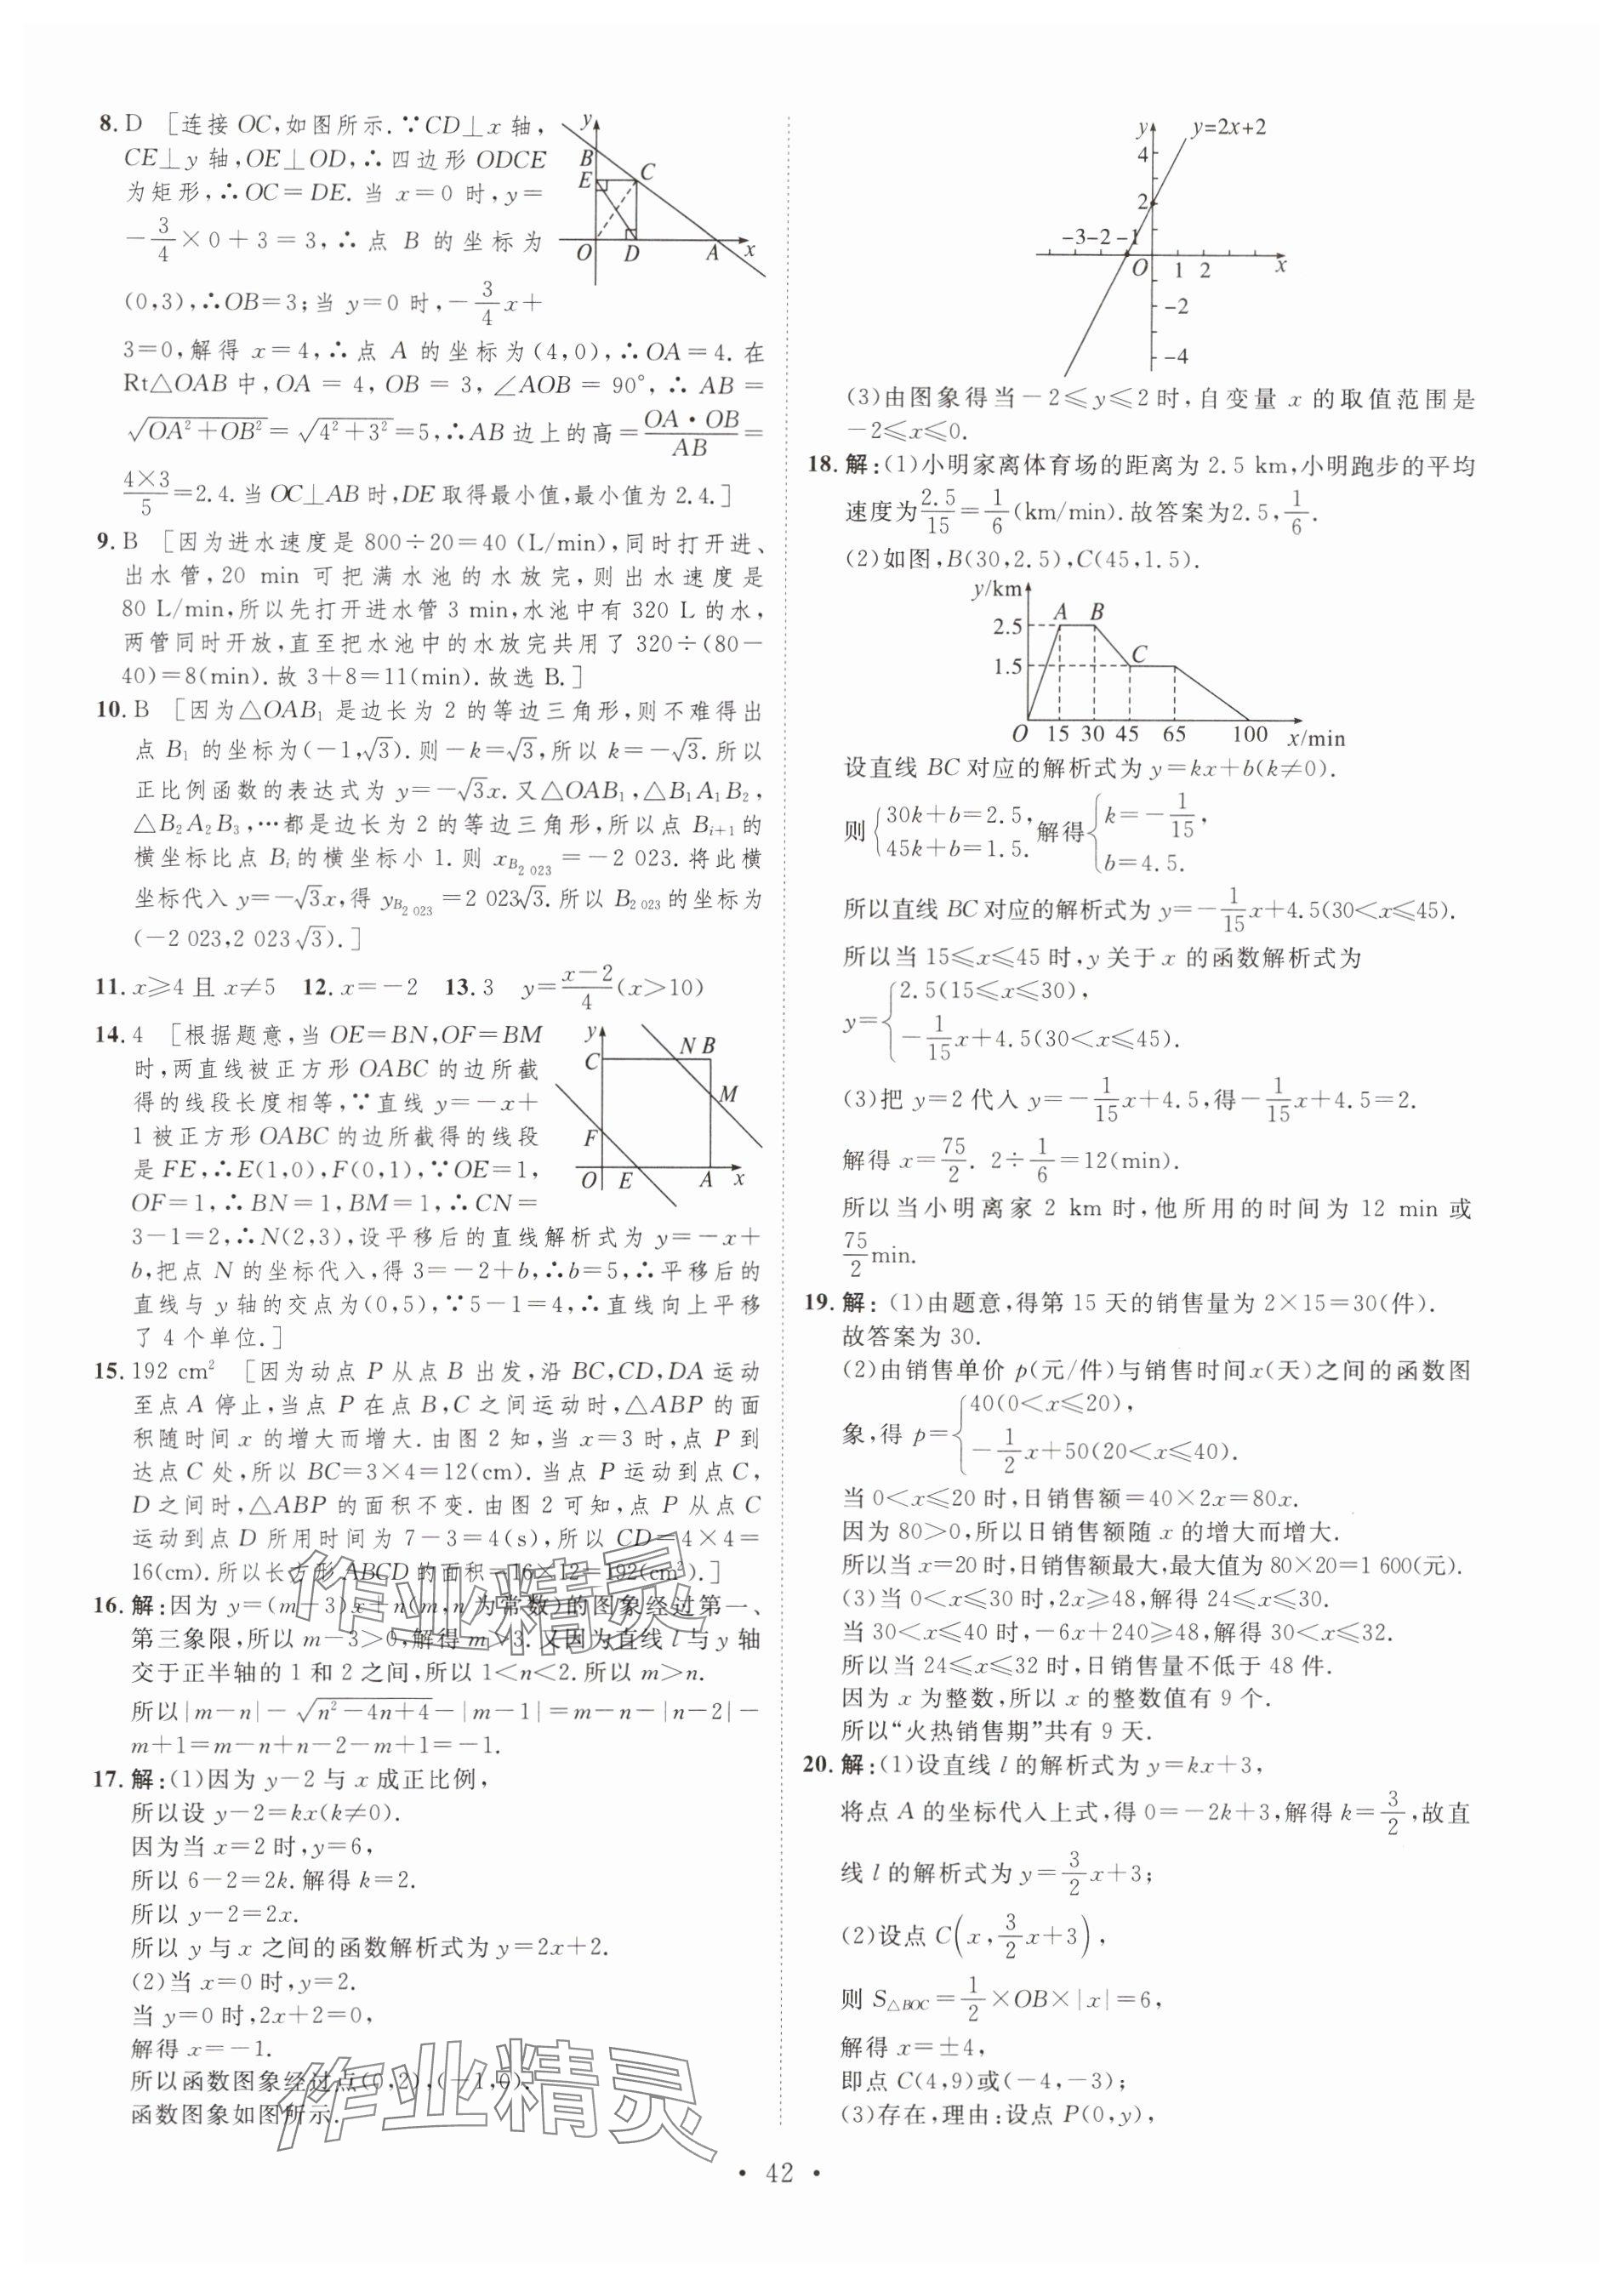 8. D [连接 OC,如图所示.∵CD⊥x 轴,
CE⊥y 轴,OE⊥OD,∴四边形 ODCE
为矩形,∴OC=DE. 当 x=0 时,y=
-3/4×0+3=3,∴点 B 的坐标为
(0,3),∴OB=3;当 y=0 时,-3/4x+
3=0,解得 x=4,∴点 A 的坐标为(4,0),∴OA=4. 在
Rt△OAB 中,OA = 4, OB = 3, ∠AOB = 90°, ∴ AB =
√(OA²+OB²)=√(4²+3²)=5,∴AB 边上的高=OA·OB/AB=
4×3/5=2.4. 当 OC⊥AB 时,DE 取得最小值,最小值为 2.4.]
y
B
C
E
O
D
A
x
9. B [因为进水速度是 800÷20=40 (L/min),同时打开进、
出水管,20 min 可把满水池的水放完,则出水速度是
80 L/min,所以先打开进水管 3 min,水池中有 320 L 的水,
两管同时开放,直至把水池中的水放完共用了 320÷(80-
40)=8(min). 故 3+8=11(min). 故选 B.]
10. B [因为△OAB₁ 是边长为 2 的等边三角形,则不难得出
点 B₁ 的坐标为(-1,√3). 则-k=√3,所以 k=-√3. 所以
正比例函数的表达式为 y=-√3x. 又△OAB₁,△B₁A₁B₂,
△B₂A₂B₃,…都是边长为 2 的等边三角形,所以点 Bᵢ₊₁ 的
横坐标比点 Bᵢ 的横坐标小 1. 则 x_{B₂ ₀₂₃}=-2 023. 将此横
坐标代入 y=-√3x,得 y_{B₂ ₀₂₃}=2 023√3. 所以 B₂ ₀₂₃ 的坐标为
(-2 023,2 023√3).]
11. x≥4 且 x≠5 12. x=-2 13. 3 y=(x-2)/4(x>10)
14. 4 [根据题意,当 OE=BN,OF=BM
时,两直线被正方形 OABC 的边所截
得的线段长度相等,∵直线 y=-x+
1 被正方形 OABC 的边所截得的线段
是 FE,∴E(1,0),F(0,1),∵OE=1,
OF=1,∴BN=1,BM=1,∴CN=
3-1=2,∴N(2,3),设平移后的直线解析式为 y=-x+
b,把点 N 的坐标代入,得 3=-2+b,∴b=5,∴平移后的
直线与 y 轴的交点为(0,5),∵5-1=4,∴直线向上平移
了 4 个单位.]
y
C
N B
M
F
O
E
A
x
15. 192 cm² [因为动点 P 从点 B 出发,沿 BC,CD,DA 运动
至点 A 停止,当点 P 在点 B,C 之间运动时,△ABP 的面
积随时间 x 的增大而增大. 由图 2 知,当 x=3 时,点 P 到
达点 C 处,所以 BC=3×4=12(cm). 当点 P 运动到点 C,
D 之间时,△ABP 的面积不变. 由图 2 可知,点 P 从点 C
运动到点 D 所用时间为 7-3=4(s),所以 CD=4×4=
16(cm). 所以长方形 ABCD 的面积=16×12=192(cm²).]
16. 解:因为 y=(m-3)x+n(m,n 为常数)的图象经过第一、
第三象限,所以 m-3>0,解得 m>3. 又因为直线 l 与 y 轴
交于正半轴的 1 和 2 之间,所以 1<n<2. 所以 m>n.
所以|m-n|-√(n²-4n+4)-|m-1|=m-n-|n-2|-
m+1=m-n+n-2-m+1=-1.
17. 解:(1)因为 y-2 与 x 成正比例,
所以设 y-2=kx(k≠0).
因为当 x=2 时,y=6,
所以 6-2=2k. 解得 k=2.
所以 y-2=2x.
所以 y 与 x 之间的函数解析式为 y=2x+2.
(2)当 x=0 时,y=2.
当 y=0 时,2x+2=0,
解得 x=-1.
所以函数图象经过点(0,2),(-1,0).
函数图象如图所示.
y
y=2x+2
4
2
-3 -2 -1
O
1 2
x
-2
-4
(3)由图象得当-2≤y≤2 时,自变量 x 的取值范围是
-2≤x≤0.
18. 解:(1)小明家离体育场的距离为 2.5 km,小明跑步的平均
速度为2.5/15=1/6(km/min). 故答案为2.5,1/6.
(2)如图,B(30,2.5),C(45,1.5).
y/km
A B
2.5
C
1.5
O 15 30 45 65 100 x/min
设直线 BC 对应的解析式为 y=kx+b(k≠0).
则{30k+b=2.5, 45k+b=1.5. 解得{k=-1/15, b=4.5.
所以直线 BC 对应的解析式为 y=-1/15x+4.5(30<x≤45).
所以当 15≤x≤45 时,y 关于 x 的函数解析式为
y={2.5(15≤x≤30), -1/15x+4.5(30<x≤45).
(3)把 y=2 代入 y=-1/15x+4.5,得-1/15x+4.5=2.
解得 x=75/2. 2÷1/6=12(min).
所以当小明离家 2 km 时,他所用的时间为 12 min 或
75/2min.
19. 解:(1)由题意,得第 15 天的销售量为 2×15=30(件).
故答案为 30.
(2)由销售单价 p(元/件)与销售时间x(天)之间的函数图
象,得 p={40(0<x≤20), -1/2x+50(20<x≤40).
当 0<x≤20 时,日销售额=40×2x=80x.
因为 80>0,所以日销售额随 x 的增大而增大.
所以当 x=20 时,日销售额最大,最大值为 80×20=1 600(元).
(3)当 0<x≤30 时,2x≥48,解得 24≤x≤30.
当 30<x≤40 时,-6x+240≥48,解得 30<x≤32.
所以当 24≤x≤32 时,日销售量不低于 48 件.
因为 x 为整数,所以 x 的整数值有 9 个.
所以“火热销售期”共有 9 天.
20. 解:(1)设直线 l 的解析式为 y=kx+3,
将点 A 的坐标代入上式,得 0=-2k+3,解得 k=3/2,故直
线 l 的解析式为 y=3/2x+3;
(2)设点 C(x,3/2x+3),
则 S△BOC=1/2×OB×|x|=6,
解得 x=±4,
即点 C(4,9)或(-4,-3);
(3)存在,理由:设点 P(0,y),
作业精灵
作业精灵
· 42 ·